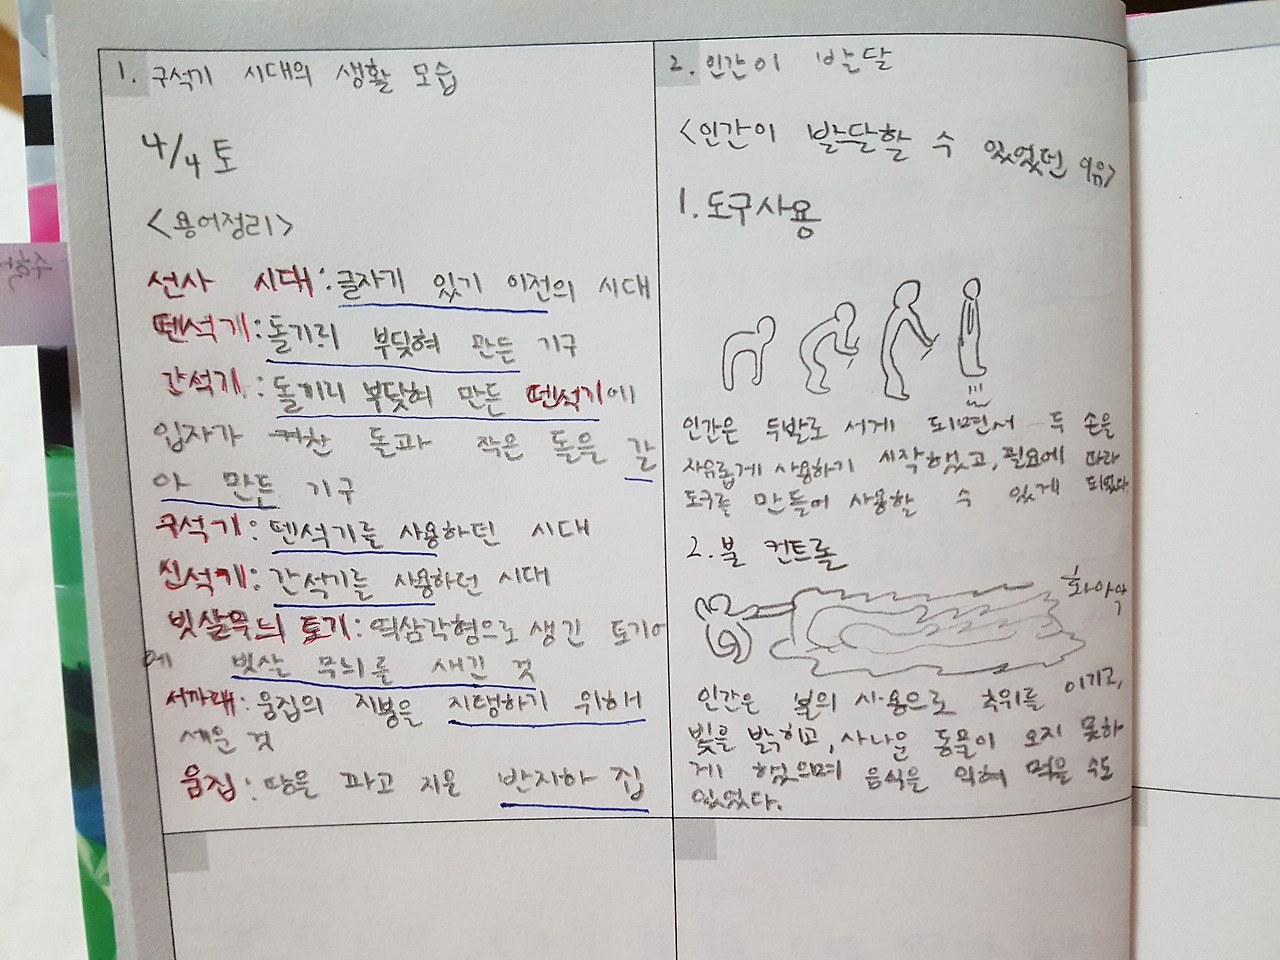 1. 구석기 시대의 생활 모습
4/4 토
<용어정리>
선사 시대: 글자가 있기 이전의 시대
뗀석기: 돌끼리 부딪혀 만든 기구
간석기: 돌끼리 부딪혀 만든 뗀석기에
입자가 거친 돌과 작은 돌을 갈
아 만든 기구
구석기: 뗀석기를 사용하던 시대
신석기: 간석기를 사용하던 시대
빗살무늬 토기: 역삼각형으로 생긴 토기에
에 빗살 무늬를 새긴 것
서까래: 움집의 지붕을 지탱하기 위해서
세운 것
움집: 땅을 파고 지은 반지하 집
2. 인간이 발달
<인간이 발달할 수 있었던 이유>
1. 도구사용
인간은 두발로 서게 되면서 두 손을
자유롭게 사용하기 시작했고, 필요에 따라
도구를 만들어 사용할 수 있게 되었다.
2. 불 컨트롤
화아악
인간은 불의 사용으로 추위를 이기고,
빛을 밝히고, 사나운 동물이 오지 못하
게 했으며 음식을 익혀 먹을 수도
있었다.